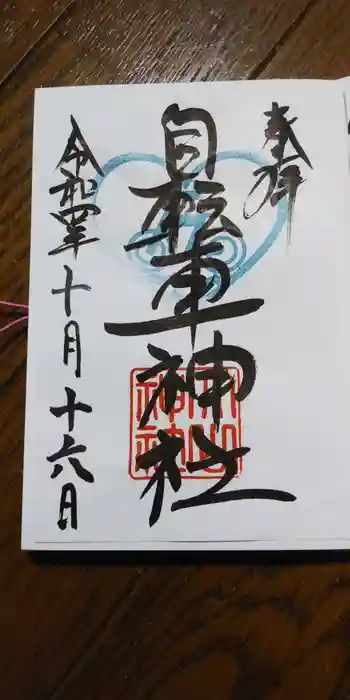 奉拝
自転車神社
令和四年十月十六日